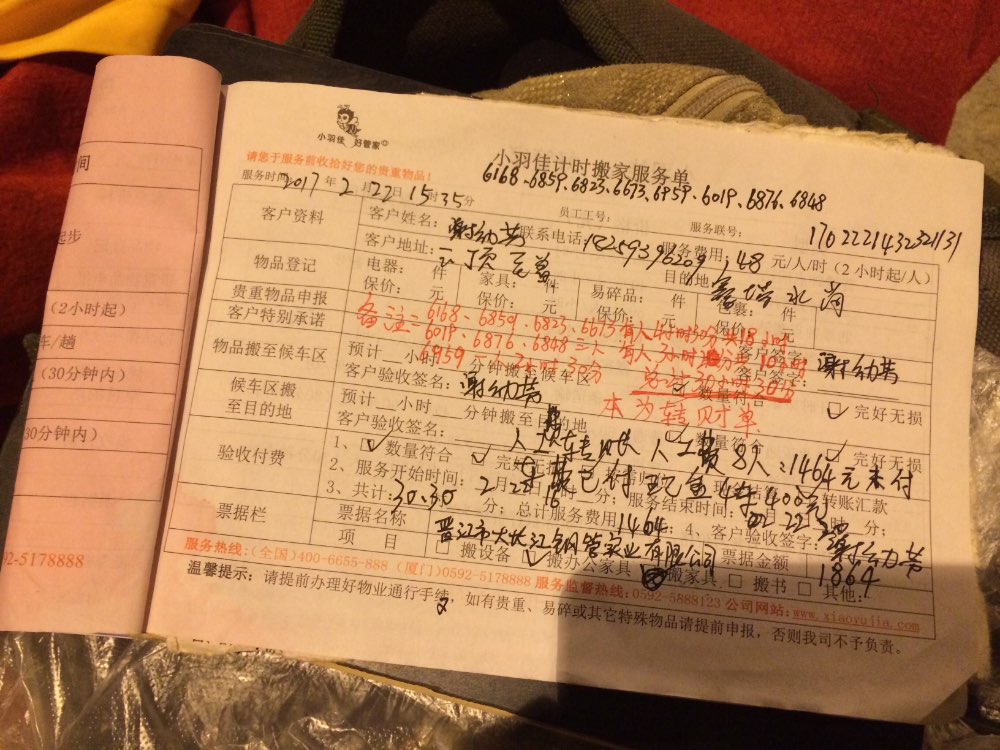 间
起步
(2小时起)
车/趟
(30分钟内)
30分钟内)
92-5178888
小羽佳 好管家
小羽佳计时搬家服务单
请您于服务前收拾好您的贵重物品!
6168-6859、6823、6673、6959、6019、6876、6848
服务时间:2017年2月22日15时35分
员工工号:
服务联号:
客户资料
客户姓名:谢幼芳
联系电话:
服务费用:48元/人/时(2小时起/人)
客户地址:
目的地:
物品登记
电器: 件
家具: 件
易碎品: 件
包裹: 件
贵重物品申报
保价: 元
保价: 元
保价: 元
保价: 元
客户特别承诺
备注:6168-6859、6823、6673
6019、6876、6848三人
客户签字:谢幼芳
物品搬至候车区
预计 小时 分钟搬至候车区
数量符合
完好无损
客户验收签名:谢幼芳
本为转财单
候车区搬至目的地
预计 小时 分钟搬至目的地
客户验收签名:
数量符合
完好无损
人工费8人:1464元未付
验收付费
1、数量符合 完好无损
转账汇款
车费已付现金4车400元
2、服务开始时间:2月22日16时 分;服务结束时间: 月22日 时 分;
3、共计:30.30 分;总计服务费用1464 4、客户验收签字:谢幼芳
票据栏
票据名称
晋江市大长江钢管实业有限公司
票据金额
1864
项目
搬设备 搬办公家具 搬家具 搬书 其他:
服务热线:(全国)400-6655-888 (厦门)0592-5178888 服务监督热线:0592-5888123 公司网站:www.xiaoyujia.com
温馨提示:请提前办理好物业通行手续,如有贵重、易碎或其它特殊物品请提前申报,否则我司不予负责。